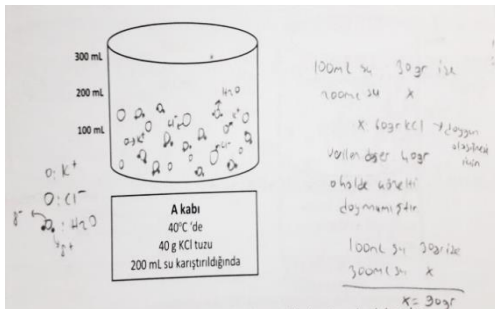 300 mL
200 mL
100 mL
H2O
K+
Cl-
O: K+
O: Cl-
: H2O
δ-
δ+
A kabı
40°C 'de
40 g KCl tuzu
200 mL su karıştırıldığında
100ml su 30gr ise
200ml su x
x 60gr KCl
verilen değer 40gr
o halde
doymamıştır
100ml su 30gr ise
300ml su x
x = 30gr